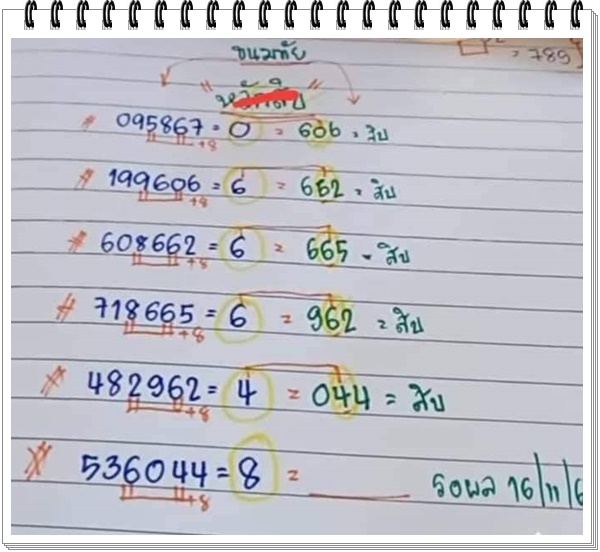 ขนมทัย
= 789
095867 = 0 = 606 = สิบ
+8
199606 = 6 = 662 = สิบ
+8
608662 = 6 = 665 - สิบ
+8
# 718665 = 6 = 962 = สิบ
+8
482962 = 4 = 044 = สิบ
+8
536044 = 8 = ______ รอผล 16/11/6
+8